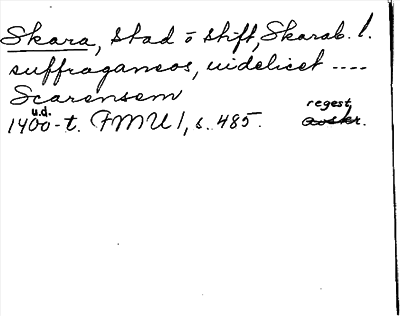 Skara, stad o stift, Skarab. l.
suffraganeos, videlicet ----
Scarensem
u.d. regest
1400-t. FMU 1, s. 485. avskr.